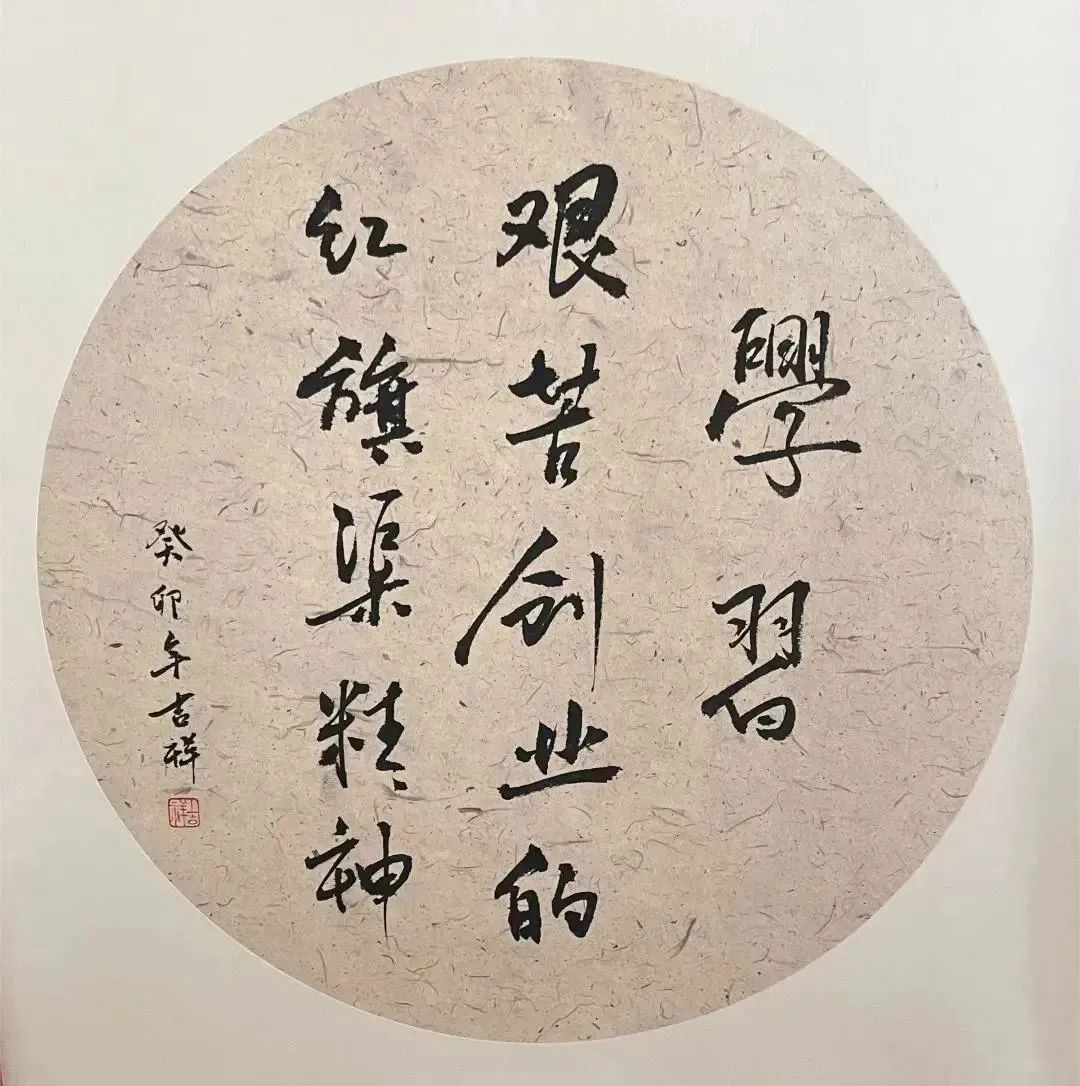 學習
艰苦创业的
红旗渠精神
癸卯年吉祥
吉祥